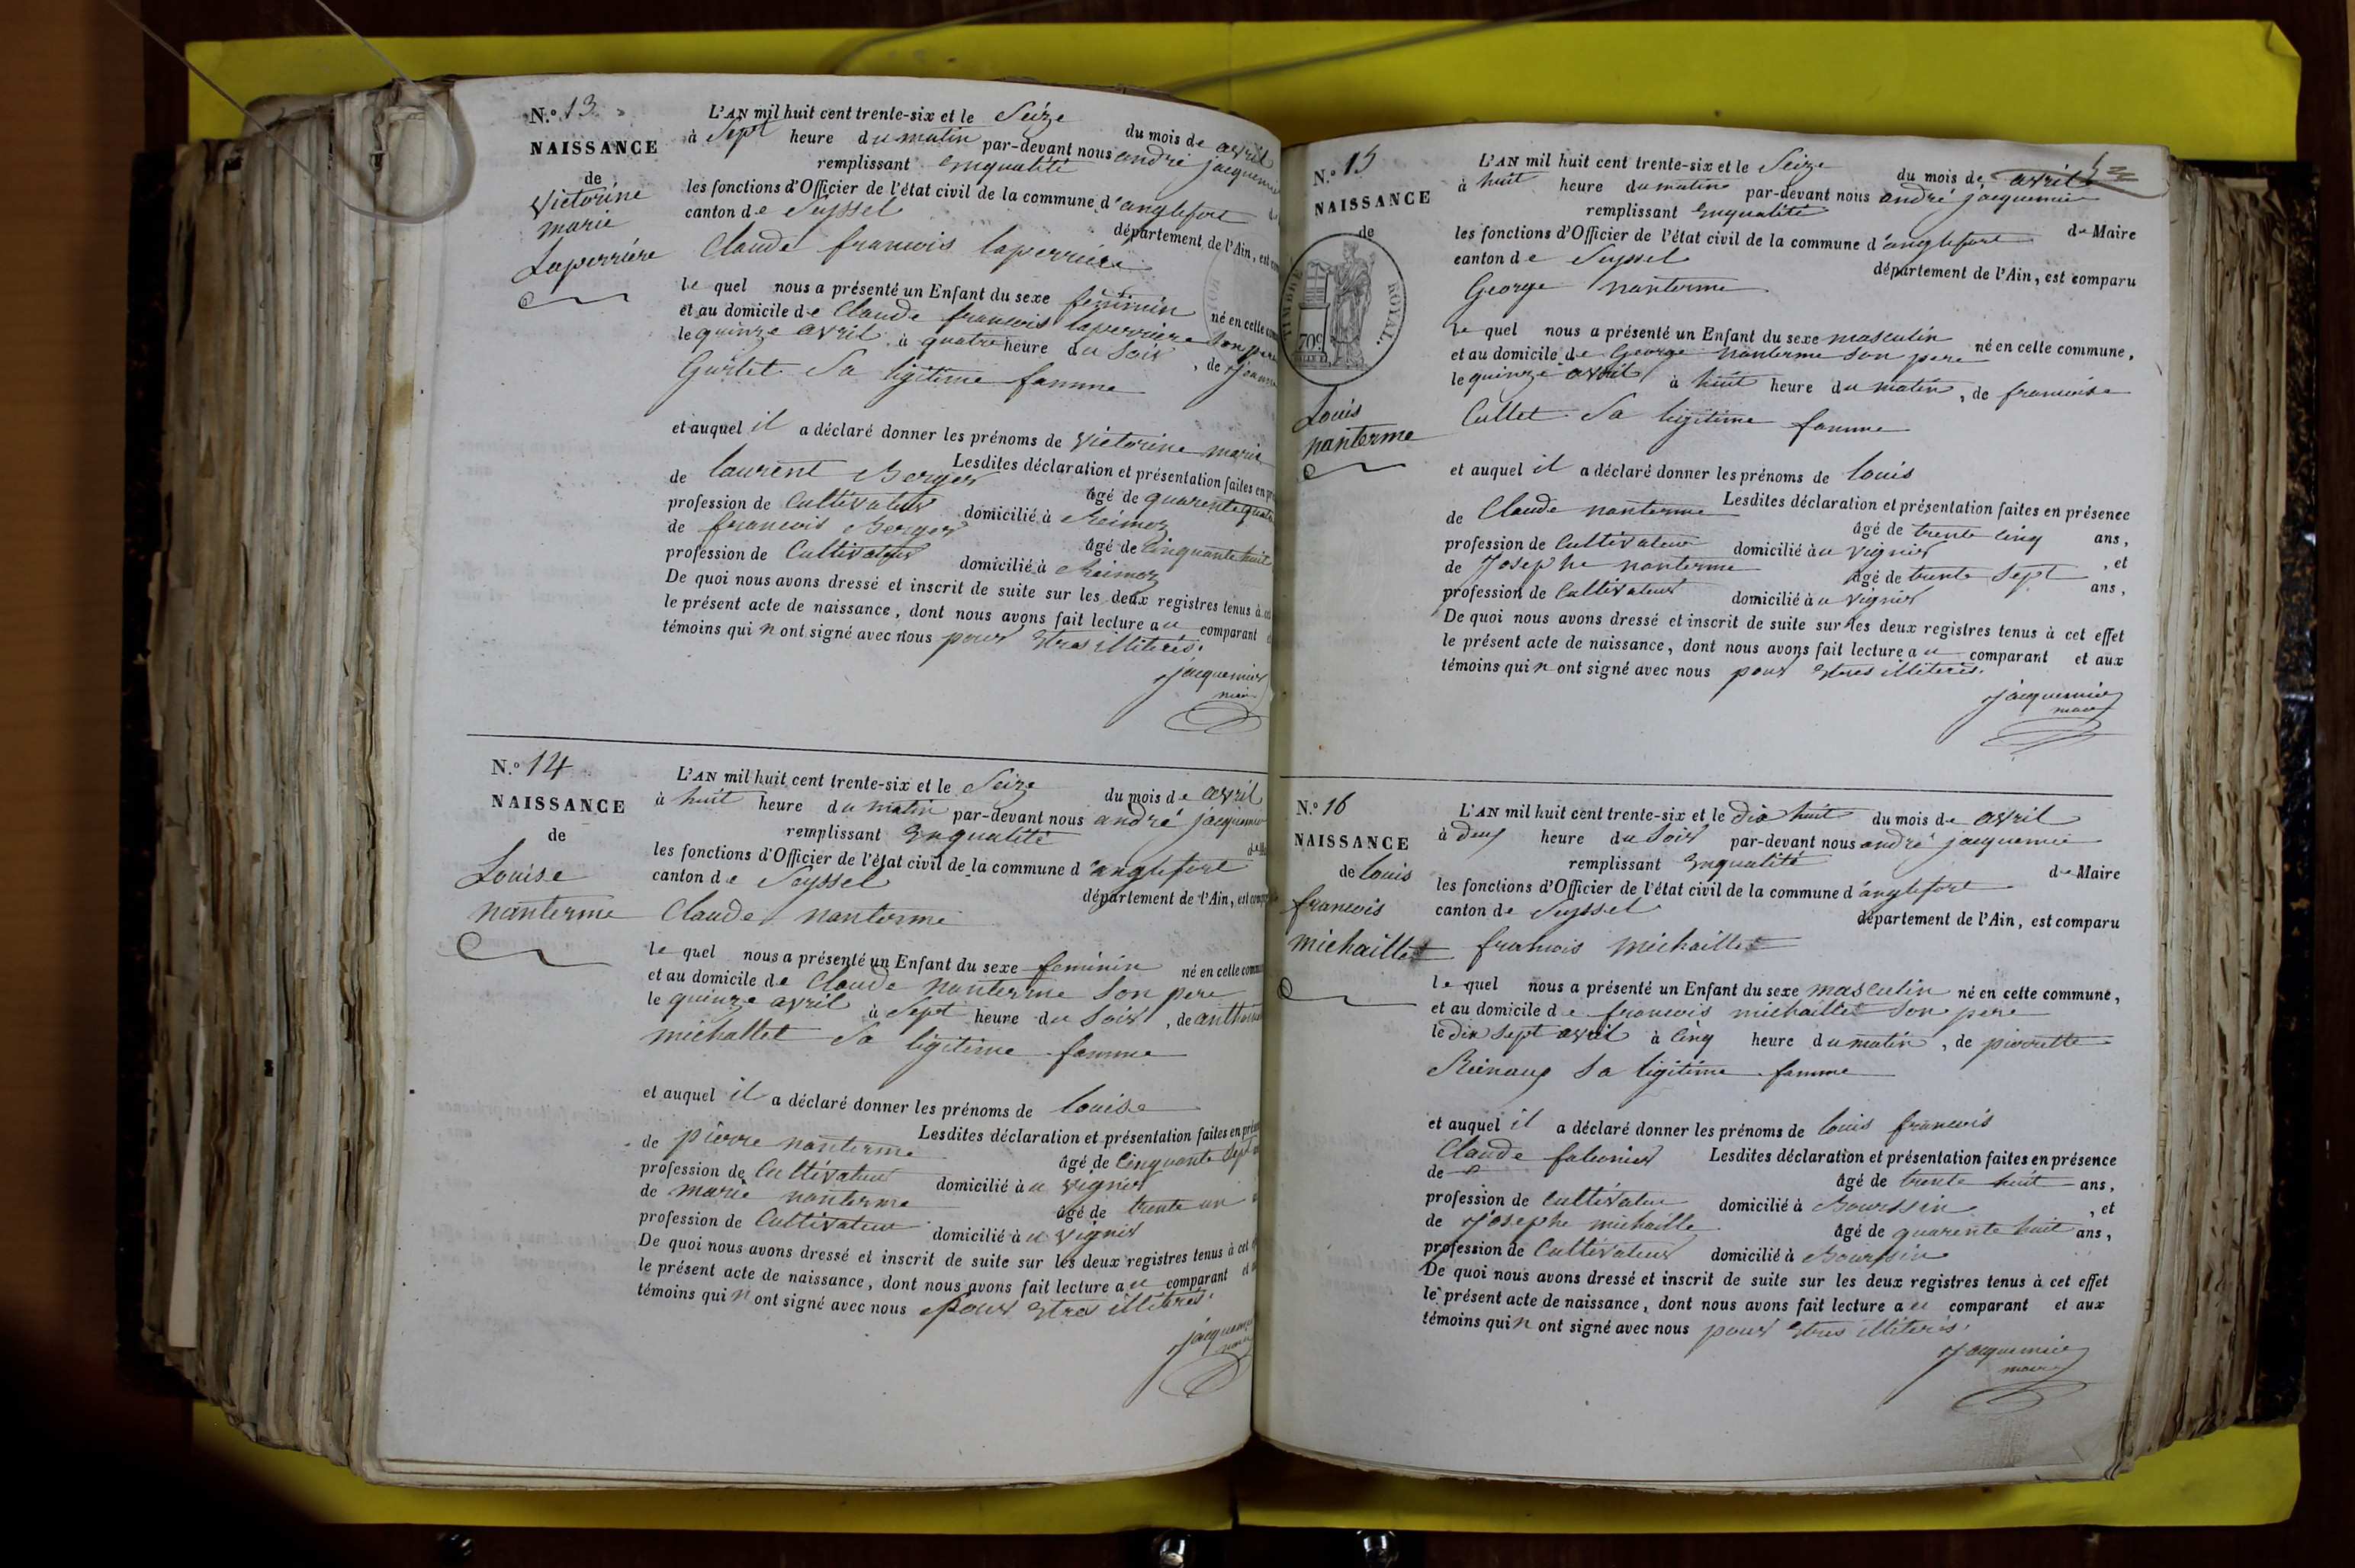 N.º 13
NAISSANCE
de
Victorine
marie
Laperrière
L'AN mil huit cent trente-six et le Seize du mois de avril
à Sept heure du matin par-devant nous andré jacquemier
remplissant Enqualité
les fonctions d'Officier de l'état civil de la commune d'anglefort
canton de Seyssel département de l'Ain, est
Claude francois laperriere
le quel nous a présenté un Enfant du sexe féminin né en celle
et au domicile de Claude francois laperriere Son pere
le quinze avril à quatre heure du Soir , de
Gurlet Sa ligitime famme
et auquel il a déclaré donner les prénoms de Victorine marie
Lesdites déclaration et présentation faites en
de laurent Berger âgé de quarente quatre
profession de Cultivateur domicilié à
de francois Berger âgé de Cinquante huit
profession de Cultivateur domicilié à
De quoi nous avons dressé et inscrit de suite sur les deux registres tenus à
le présent acte de naissance, dont nous avons fait lecture au comparant
témoins qui n ont signé avec nous pour Etres illiterés.
jacquemier
maire
N.º 14
NAISSANCE
de
Louise
nanterme
L'AN mil huit cent trente-six et le Seize du mois de avril
à huit heure du matin par-devant nous andré jacquemier
remplissant Enqualité
les fonctions d'Officier de l'état civil de la commune d'anglefort
canton de Seyssel département de l'Ain, est
Claude nanterme
le quel nous a présenté un Enfant du sexe feminin né en celle
et au domicile de Claude nanterme Son pere
le quinze avril à Sept heure du Soir , de
michallet Sa ligitime famme
et auquel il a déclaré donner les prénoms de louise
Lesdites déclaration et présentation faites en
de pierre nanterme âgé de Cinquante Sept
profession de Cultivateur domicilié au vignier
de marie nanterme âgé de trente un
profession de Cultivateur domicilié au vignier
De quoi nous avons dressé et inscrit de suite sur les deux registres tenus à cet
le présent acte de naissance, dont nous avons fait lecture au comparant et
témoins qui n ont signé avec nous pour Etres illiterés.
jacquemier
maire
N.º 15
NAISSANCE
de
TIMBRE ROYAL.
70c
Louis
nanterme
L'AN mil huit cent trente-six et le Seize du mois de avril
à huit heure du matin par-devant nous andré jacquemier
remplissant Enqualité de Maire
les fonctions d'Officier de l'état civil de la commune d'anglefort
canton de Seyssel département de l'Ain, est comparu
George nanterme
le quel nous a présenté un Enfant du sexe masculin né en celle commune,
et au domicile de George nanterme Son pere
le quinze avril à huit heure du matin , de francoise
Cullet Sa ligitime famme
et auquel il a déclaré donner les prénoms de louis
Lesdites déclaration et présentation faites en présence
de Claude nanterme âgé de trente Cinq ans,
profession de Cultivateur domicilié au vignier , et
de Josephe nanterme âgé de trente Sept ans,
profession de Cultivateur domicilié au vignier
De quoi nous avons dressé et inscrit de suite sur les deux registres tenus à cet effet
le présent acte de naissance, dont nous avons fait lecture au comparant et aux
témoins qui n ont signé avec nous pour Etres illiterés.
jacquemier
maire
N.º 16
NAISSANCE
de louis
francois
michaillet
L'AN mil huit cent trente-six et le dix huit du mois de avril
à deux heure du Soir par-devant nous andré jacquemier
remplissant Enqualité de Maire
les fonctions d'Officier de l'état civil de la commune d'anglefort
canton de Seyssel département de l'Ain, est comparu
francois michaillet
le quel nous a présenté un Enfant du sexe masculin né en cette commune,
et au domicile de francois michaillet Son pere
le dix Sept avril à Cinq heure du matin , de pierrette
Sa ligitime famme
et auquel il a déclaré donner les prénoms de louis francois
Lesdites déclaration et présentation faites en présence
de Claude falconier âgé de trente huit ans,
profession de Cultivateur domicilié à Boursin , et
de Josephe michaille âgé de quarente huit ans,
profession de Cultivateur domicilié à Boursin
De quoi nous avons dressé et inscrit de suite sur les deux registres tenus à cet effet
le présent acte de naissance, dont nous avons fait lecture au comparant et aux
témoins qui n ont signé avec nous pour Etres illiterés.
jacquemier
maire